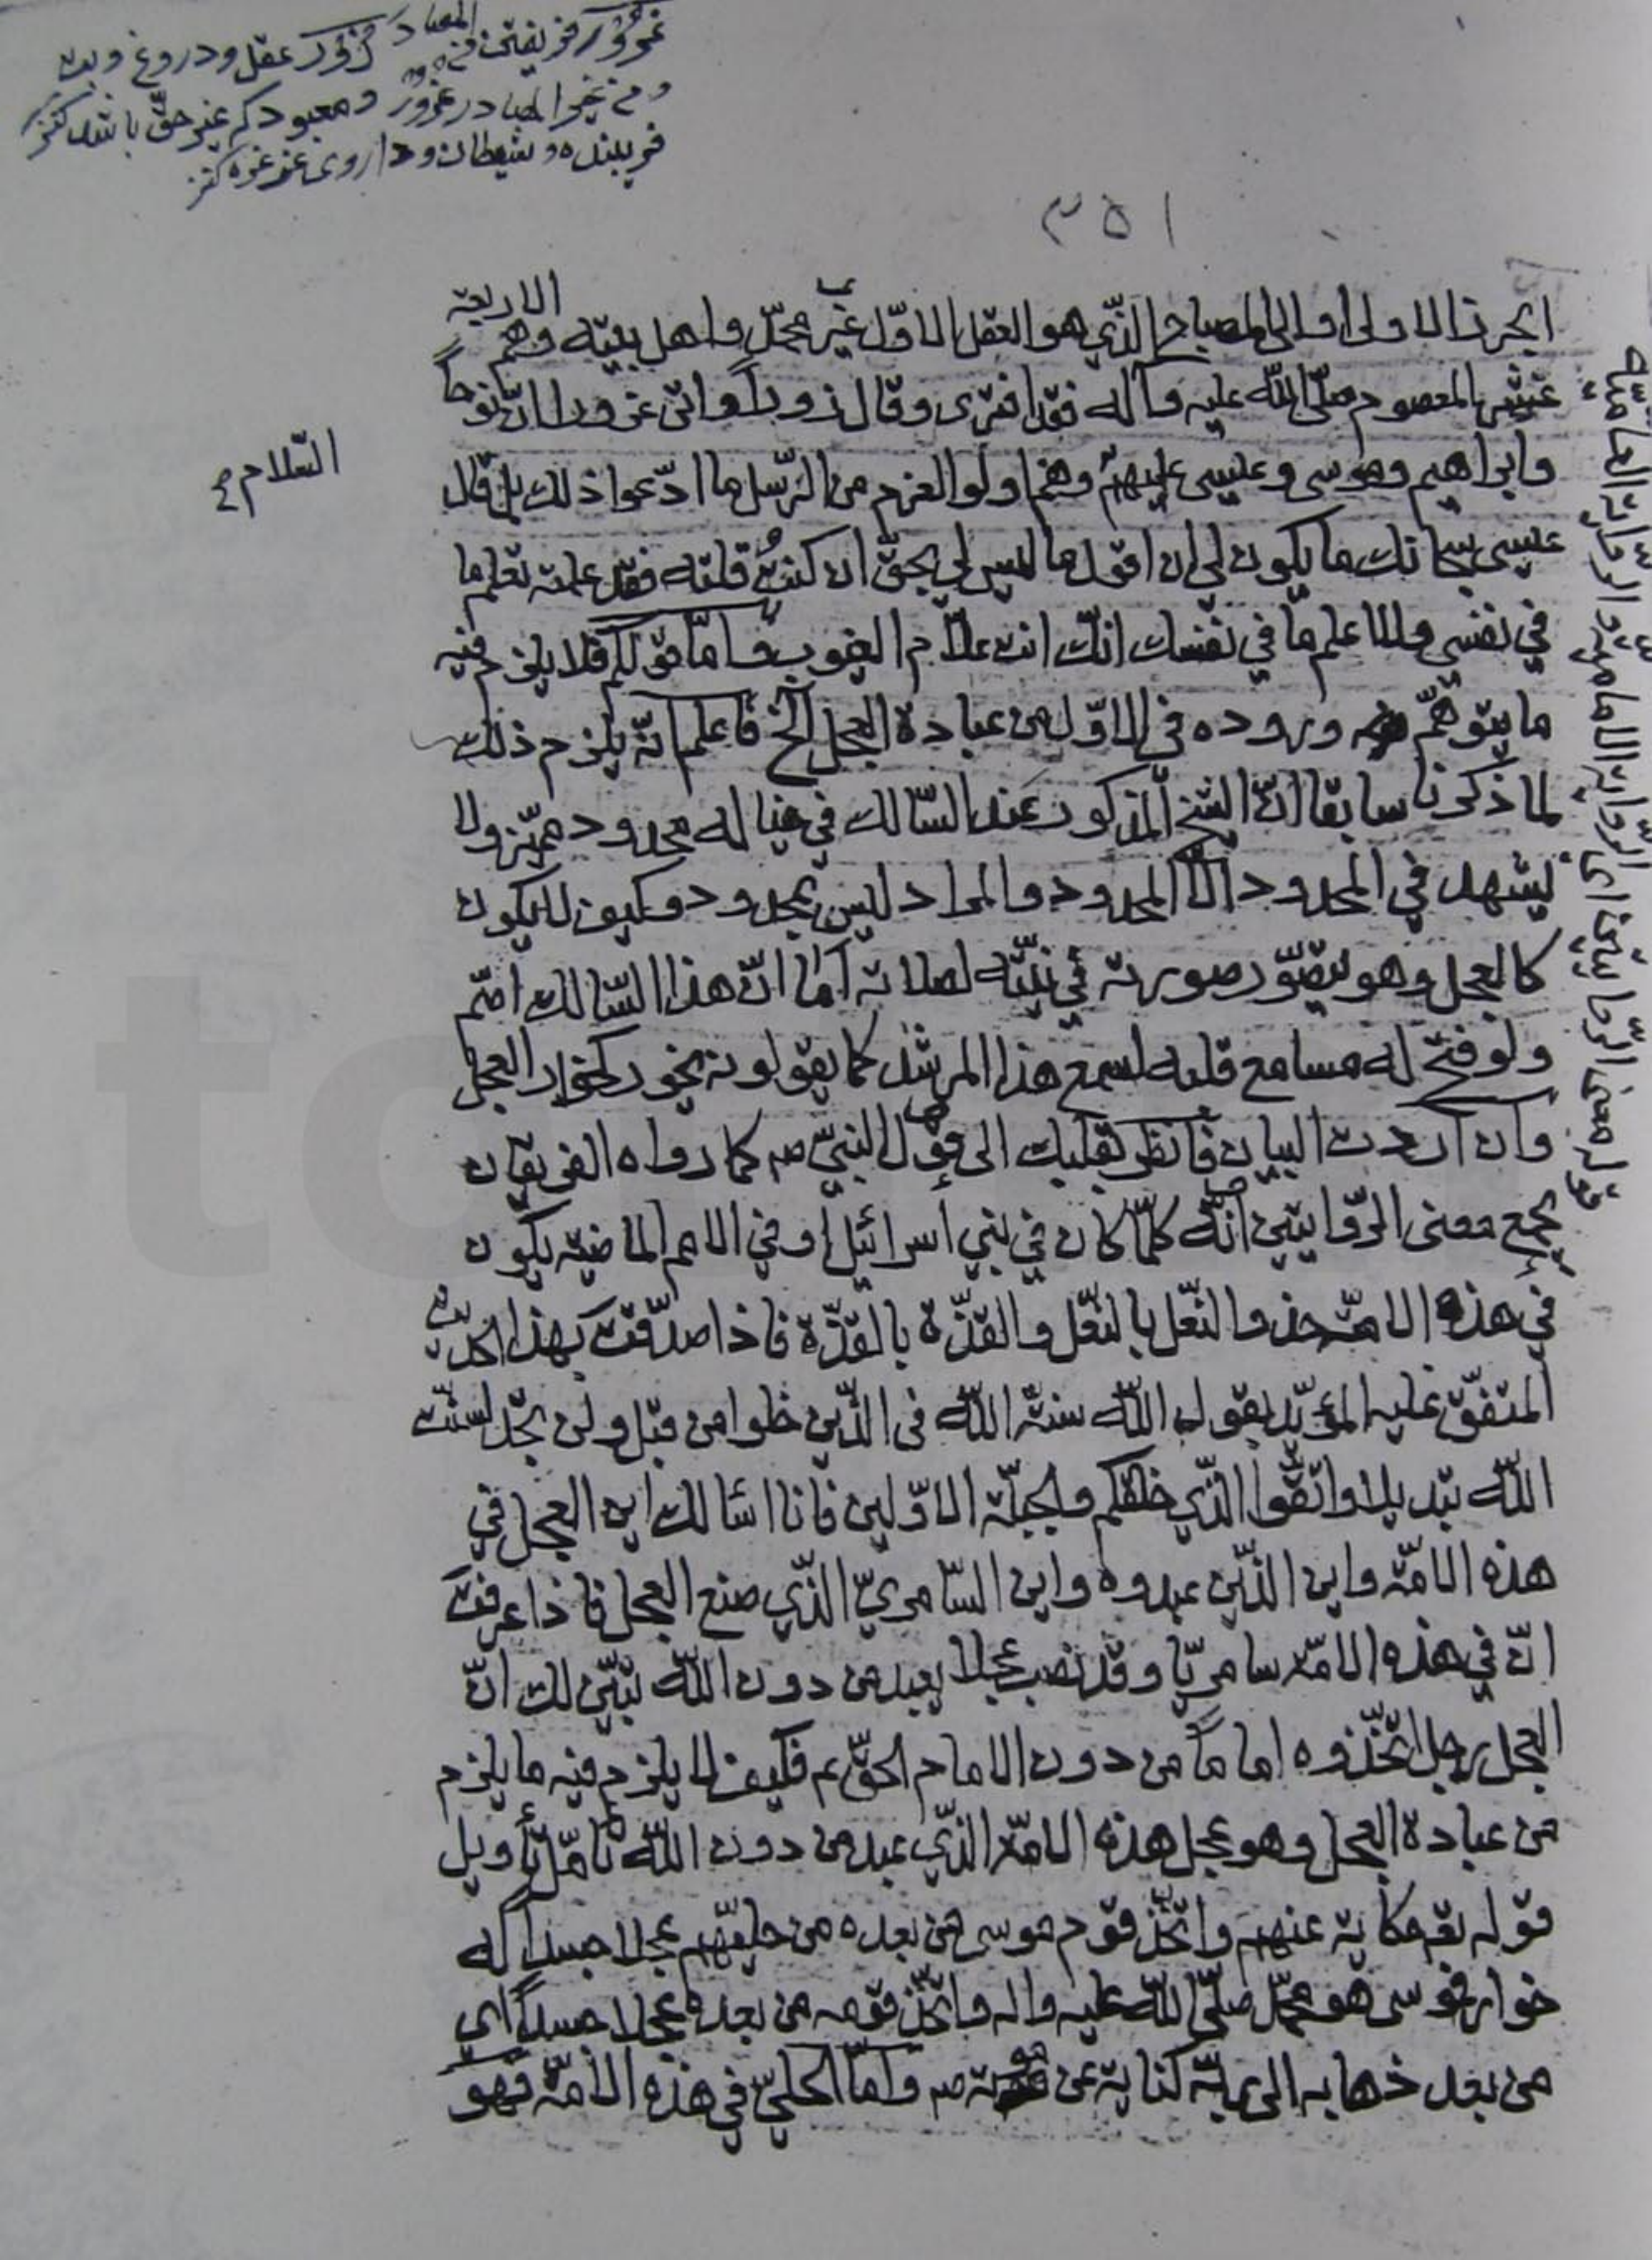 غرور فريفتن
كنز
فريبنده و شيطان و داروى غرغره كنز
٣٥١
الاربعة
الاولى او الى المصباح الذّي هو العقل الاوّل غير محمّد و اهل بيته وهم
عشر المعصوم صلّى اللّه عليه و آله فقد افترى و قال زوراً و اتى غروراً انّ نوحاً
و ابراهيم و موسى و عيسى عليهم وهم اولوا العزم من الرّسل ما ادّعوا ذلك بل قال
السّلام
عيسى سبحانك ما يكون لي ان اقول ما ليس لي بحقّ ان كنتُ قلته فقد علمته تعلم ما
في نفسي ولا اعلم ما في نفسك انّك انت علّام الغيوب و امّا قولكم فلا يلزم فيه
ما يتوهّم وروده في الاوّل من عبادة العجل الخ فاعلم انّه يلزم ذلك
لما ذكرنا سابقا انّ الشيخ المذكور عند السّالك في خياله محدود مميّز ولا
يشهد في المحدود الّا المحدود و المراد ليس بمحدود و كيف لا يكون
كالعجل وهو يتصوّر صورته في نيّته لصلاته اما انّ هذا السّالك اصمّ
ولو فتح له مسامع قلبه لسمع هذا المرشد كما يقولونه يخور كخوار العجل
وان اردت البيان فانظر بقلبك الى قول النبيّ ص كما رواه الفريقان
يجمع معنى الرّوايتين انّه كلّما كان في بني أسرائيل او في الامم الماضية يكون
في هذه الامّة حذو النّعل بالنّعل و القذّة بالقذّة فاذا صدّقت بهذا الحديث
المتفّق عليه المؤيّد بقول اللّه سنة اللّه فى الذّين خلوا من قبل ولن تجد لسنت
اللّه تبديلا واتّقوا الذّي خلقكم والجبلّة الاوّلين فانا اسالك اين العجل في
هذه الامّة واين الذّين عبدوه واين السّامريّ الذّي صنع العجل فاذا عرفت
انّ في هذه الامّة سامريّا وقد نصب عجلا يعبد من دون اللّه تبيّن لك انّ
العجل رجل اتّخذوه اماماً من دون الامام الحقّ ع فكيف لا يلزم فيه ما يلزم
من عبادة العجل وهو عجل هذه الامّة الذّي عبد من دون اللّه تامّل تأويل
قوله تع حكاية عنهم واتّخذ قوم موسى من بعده من حليّهم عجلا جسداً له
خوار فموسى هو محمّد صلّى اللّه عليه واله واتّخذ قومه من بعده عجلا جسداً اى
من بعد ذهابه الى ربّه كناية عن موته ص وامّا الحليّ في هذه الامّة فهو